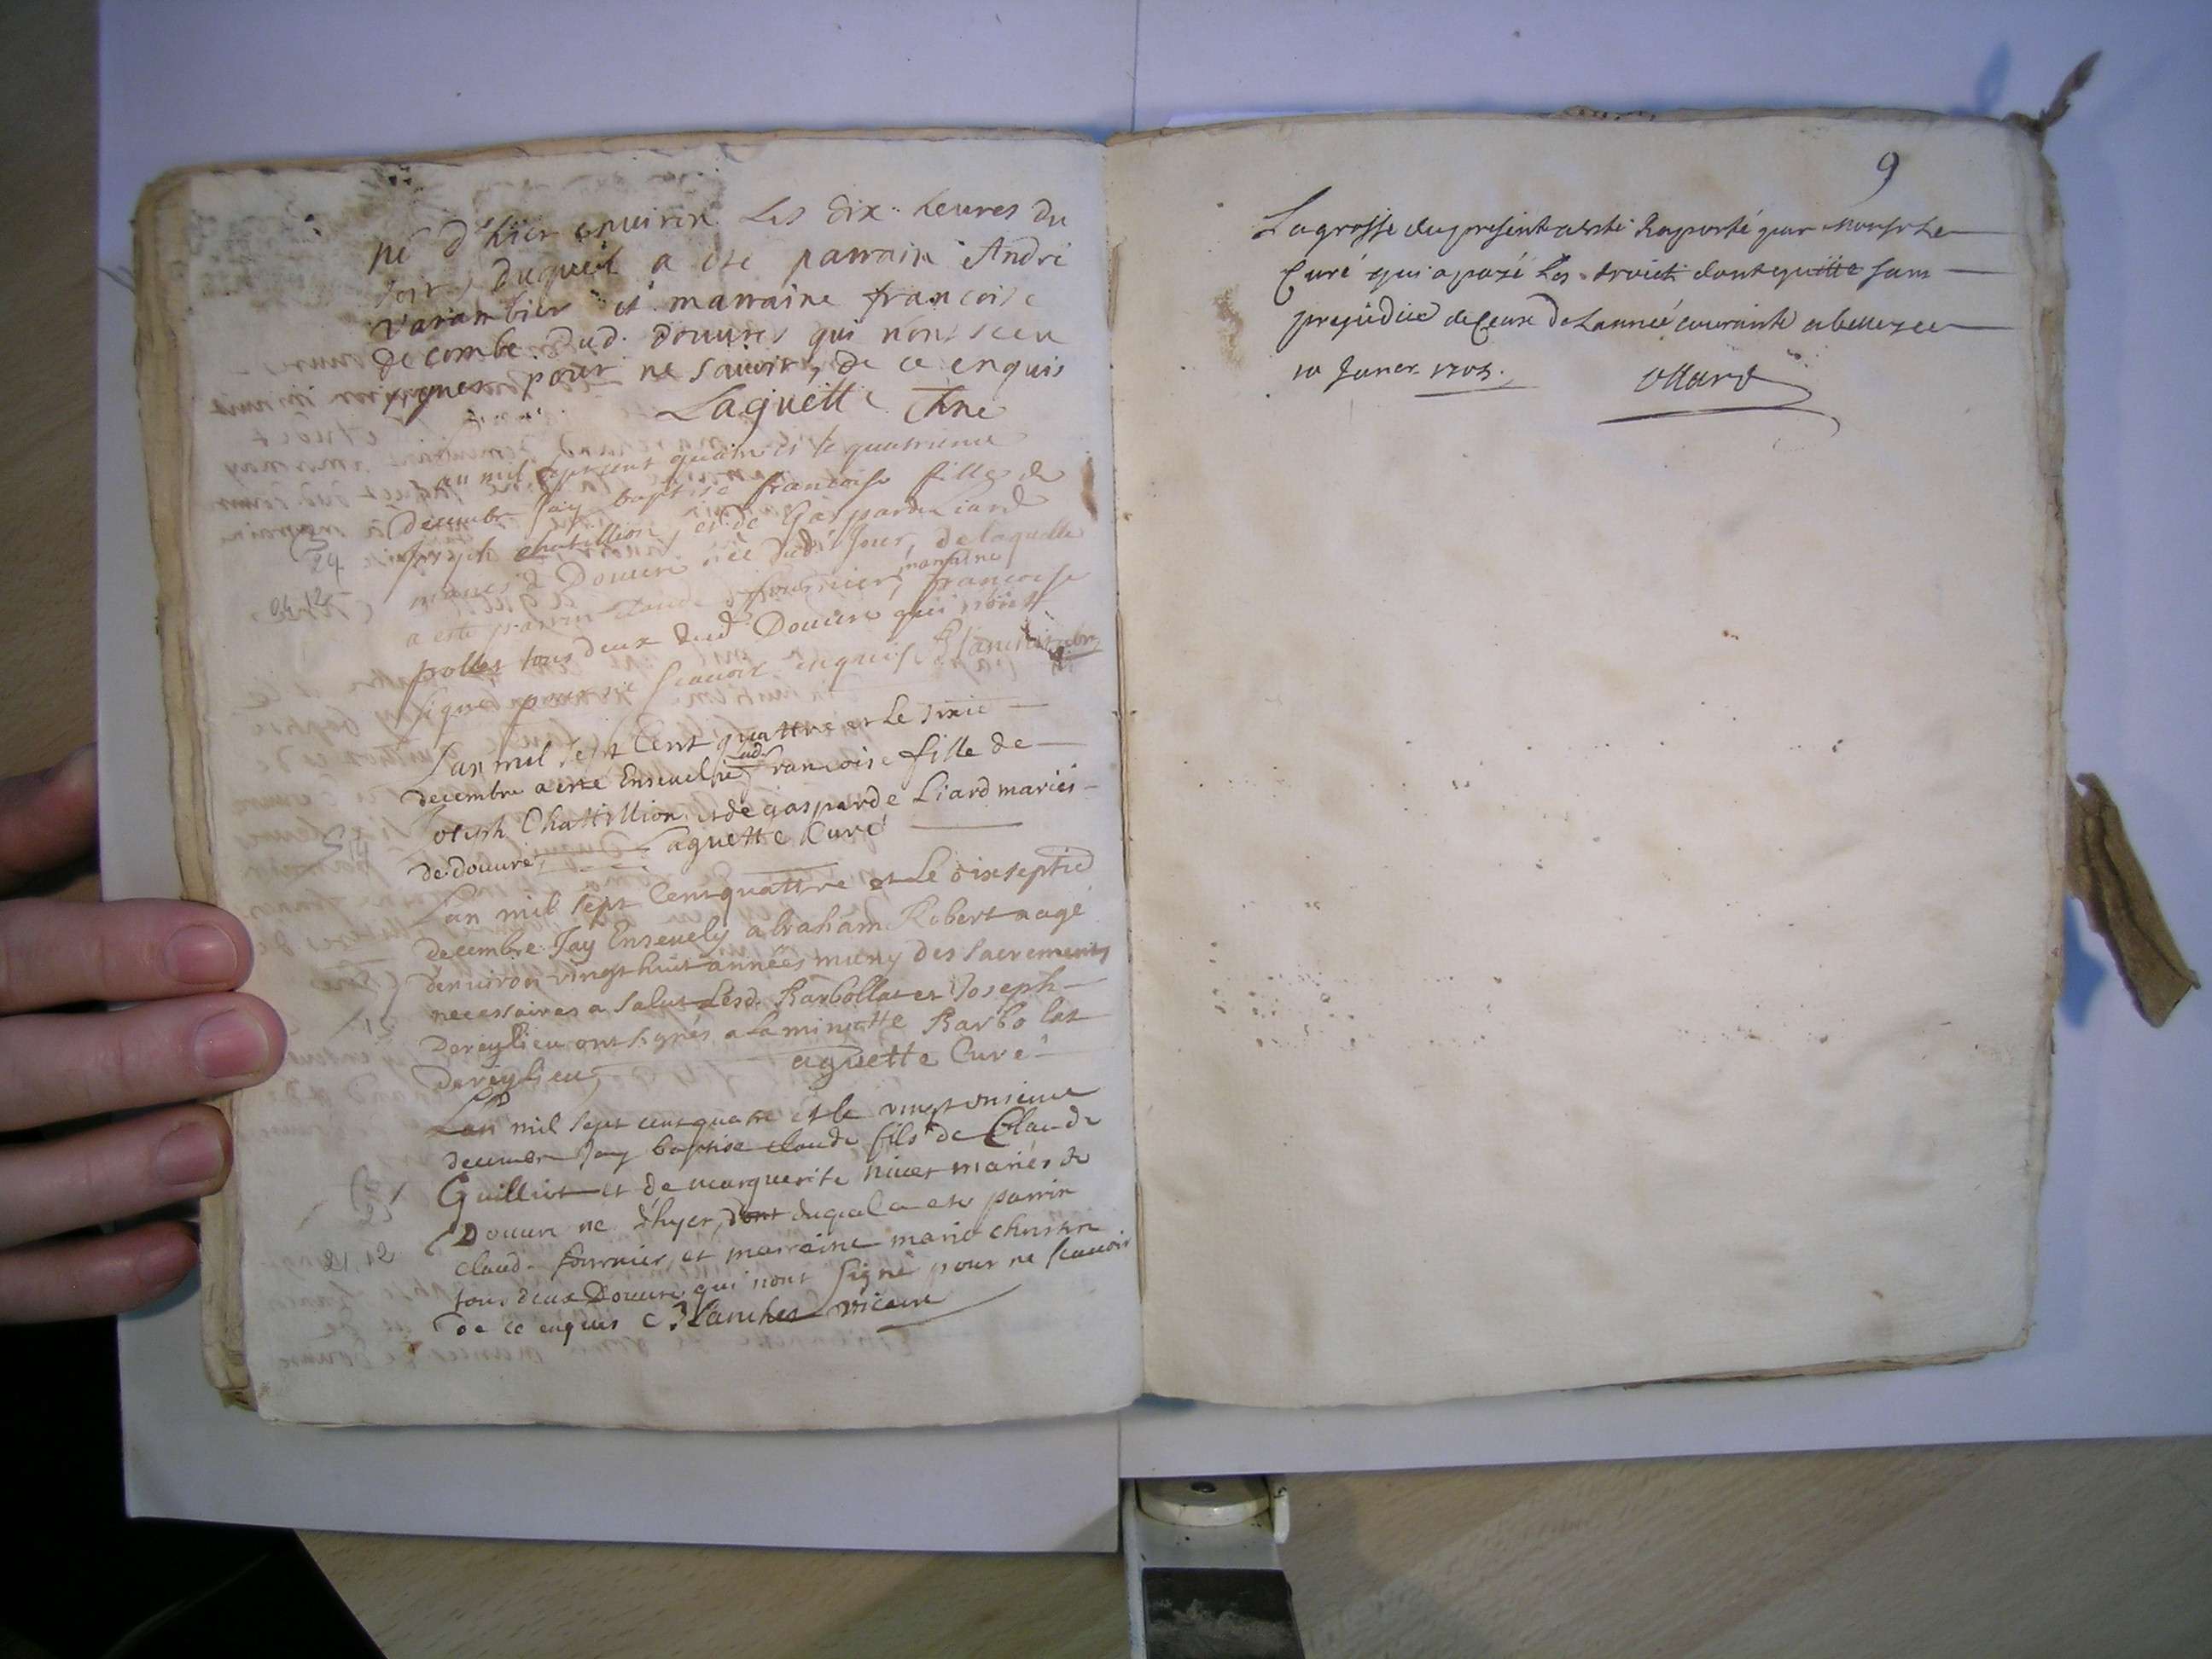 né d'hier environ Les dix heures du
soir, duquel a ete parrain André
varambier et marraine francoise
de combe dud. douvres qui n'ont sceu
signer pour ne savoir, de ce enquis
Laguette
an mil sept cent quatre et le quatrieme
decembre Jay baptisé francoise fille de
Joseph chatillion, et de Gasparde Liard
mariés de Douvre née dud. Jour, de laquelle
a esté parrin claude fournier, marraine francoise
tous deux dud Douvre qui n'ont
signé pour ne scavoir enquis Blanchet
Lan mil sept Cent quattre et Le sixie
decembre a este Ensevelie lad. francoise fille de
Joseph Chattillion et de gasparde Liard mariés
de douvre Laguette Curé
Lan mil sept Cent quattre et Le dixseptie
decembre Jay Ensevely abraham Robert aagé
denviron vingt huit années muny des sacrements
necessaires a salut Lesd. Barbollat et Joseph
Dereylieu ont signés a La minutte Barbolat
Dereylieu, Laguette Curé
Lan mil sept cent quatre et le vingt unieme
decembre Jay baptisé claude fils de Claude
Guilliot et de marguerite niver mariés de
Douvre né d'hyer, dont duquel a este parrin
claude fournier, et marraine marie chrisyn
tous deux Douvre qui n'ont signé pour ne scavoir
de ce enquis C Blanchet vicaire
24
21. 12
9
La grosse du present a esté Raporté par Monsr Le
Curé qui a payé Les droicts dont quitte sans
prejudice de Ceux de Lannée courante a belley ce
10 Janer. 1705.